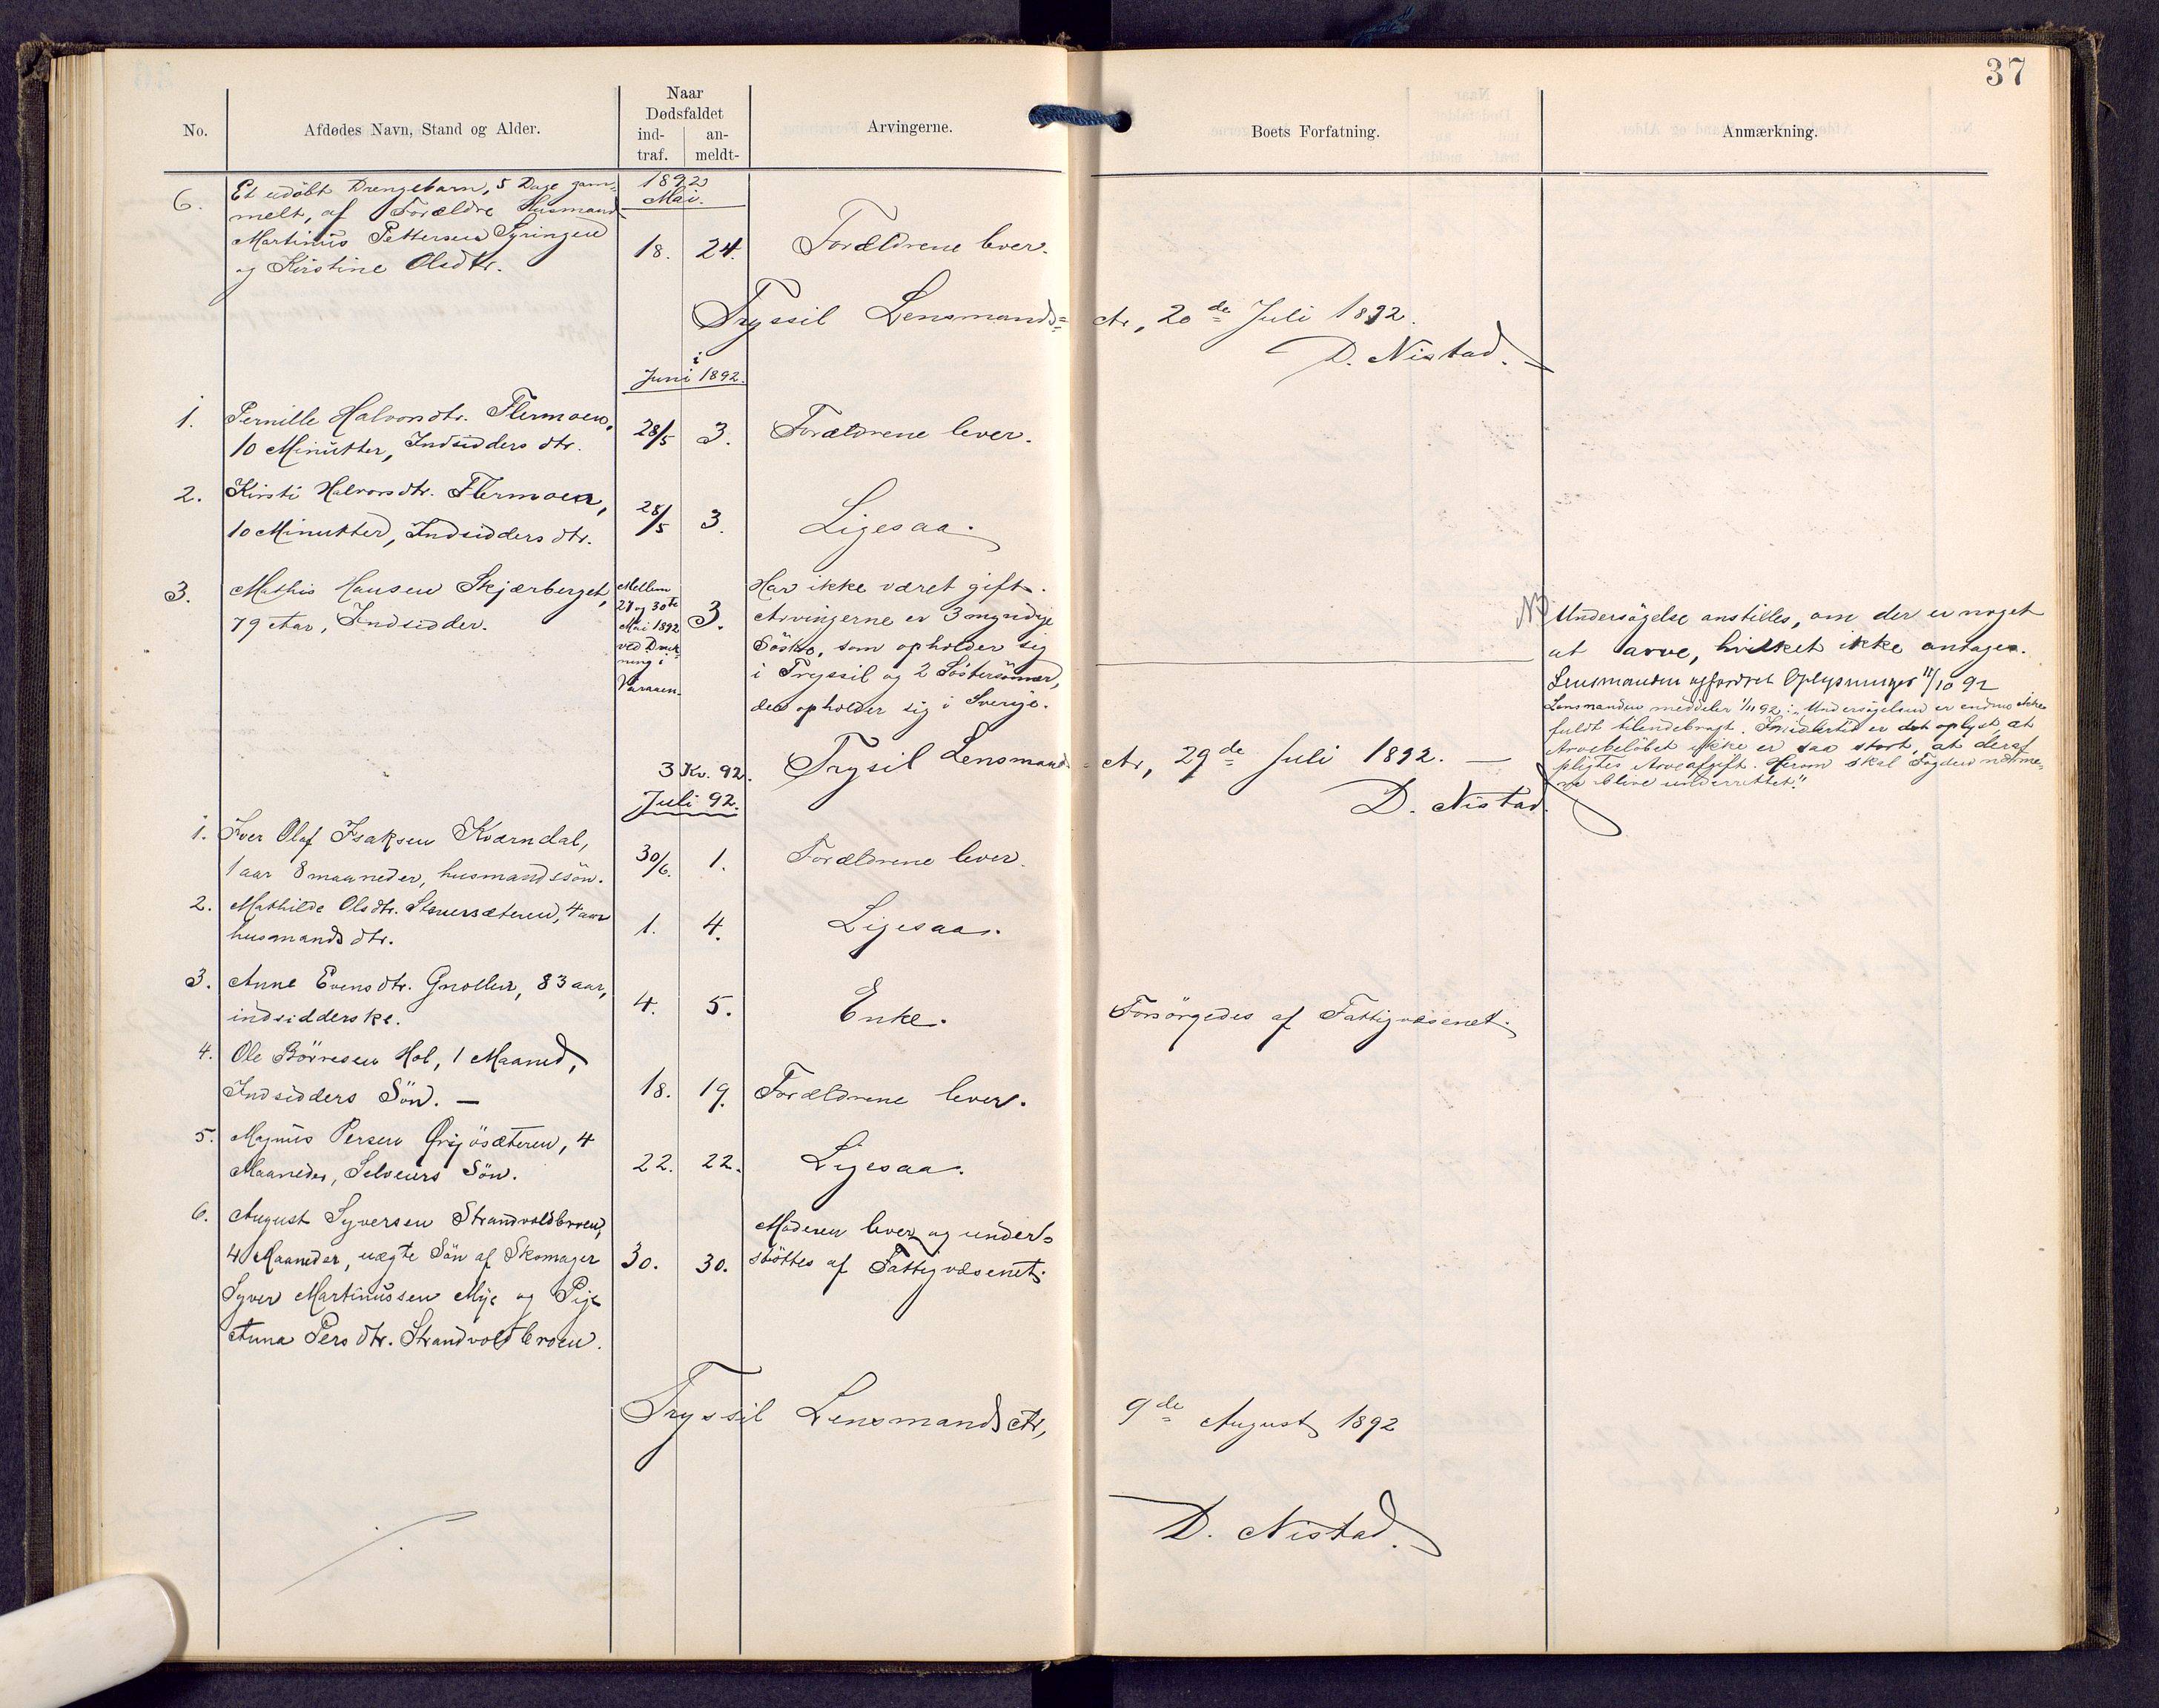 37
No.
Afdødes Navn, Stand og Alder.
Naar
Dødsfaldet
ind-
traf.
an-
meldt-
Arvingerne.
Boets Forfatning.
Anmærkning.
1892
Mai.
6. Et udöbt Drengebarn, 5 Dage gam-
melt, af Forældre Husmand
Martinus Pettersen Syringen
og Kirstine Olsdtr. 18. 24. Forældrene lever.
Tryssil Lensmands= At, 20de Juli 1892.
D. Nistad.
i
Juni 1892.
1. Pernille Halvorsdtr. Flermoen,
10 Minutter, Indsidders dtr. 28/5 3. Forældrene lever.
2. Kirsti Halvorsdtr. Flermoen,
10 Minutter, Indsidders dtr. 28/5 3. Ligesaa.
3. Mathis Hansen Skjærberget,
79 Aar, Indsidder.
Mellem
27 og 30te
Mai 1892
ved Druk-
ning i
3.
Har ikke været gift.
Arvingerne er 3 myndige
Södsk., som opholder sig
i Tryssil og 2 Söstersönner,
der opholder sig i Sverige.
NB Undersögelse anstilles, om der er noget
at arve, hvilket ikke antages.
Lensmanden opfordret Oplysninger 11/10 92
Lensmanden meddeler 1/11 92: "Undersögelsen er endnu ikke
fuldt tilendebragt. Imidlertid er det oplyst, at
Arvebelöbet ikke er saa stort, at deraf
pligtes Arveafgift. Herom skal Fogden nærme-
re blive underrettet."
3 Kv. 92. Trysil Lensmands- At, 29de Juli 1892. —
D. Nistad.
Juli 92.
1. Iver Olaf Isaksen Kværndal,
1 aar 8 maaneder, husmandssön. 30/6. 1. Forældrene lever.
2. Mathilde Olsdtr. Stenersæteren, 4 aar
husmands dtr. 1. 4. Ligesaa.
3. Anne Evensdtr. Gnollen, 83 aar,
indsidderske. 4. 5. Enke. Forsörgedes af Fattigvæsenet.
4. Ole Börresen Hol, 1 Maaned,
Indsidders Sön. — 18. 19. Forældrene lever.
5. Magnus Persen Örsjösæteren, 4
Maaneder, Selveiers Sön. 22. 22. Ligesaa.
6. August Syversen Strandvoldbroen,
4 Maaneder, uægte Sön af Skomager
Syver Martinussen Mye og Pige
Anna Persdtr. Strandvoldbroen.
30. 30.
Moderen lever og under-
stöttes af Fattigvæsenet.
Tryssil Lensmands At, 9de August 1892
D. Nistad.